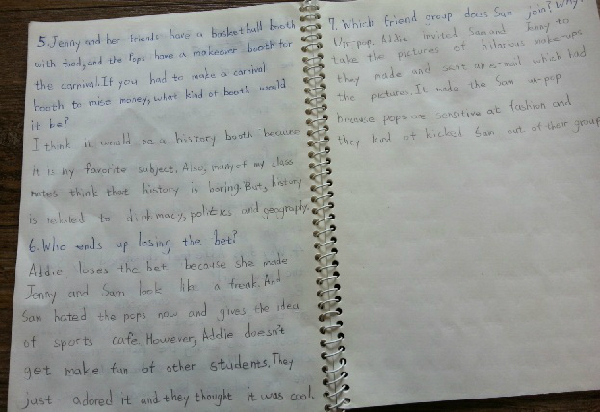 5. Jenny and her friends have a basketball booth
with food, and the Pops have a makeover booth for
the carnival. If you had to make a carnival
booth to raise money, what kind of booth would
it be?
I think it would be a history booth because
it is my favorite subject. Also, many of my class
mates think that history is boring. But, history
is related to diplomacy, politics and geography.
6. Who ends up losing the bet?
Addie loses the bet because she made
Jenny and Sam look like a freak. And
Sam hated the pops now and gives the idea
of sports cafe. However, Addie doesn't
get make fun of other students. They
just adored it and they thought it was cool.
7. Which friend group does Sam join? Why?
Un-pop. Addie invited Sam and Jenny to
take the pictures of hilarous make-ups
they made and sent an e-mail which had
the pictures. It made the Sam un-pop
because pops are sensitive at fashion and
they kind of kicked Sam out of their group.